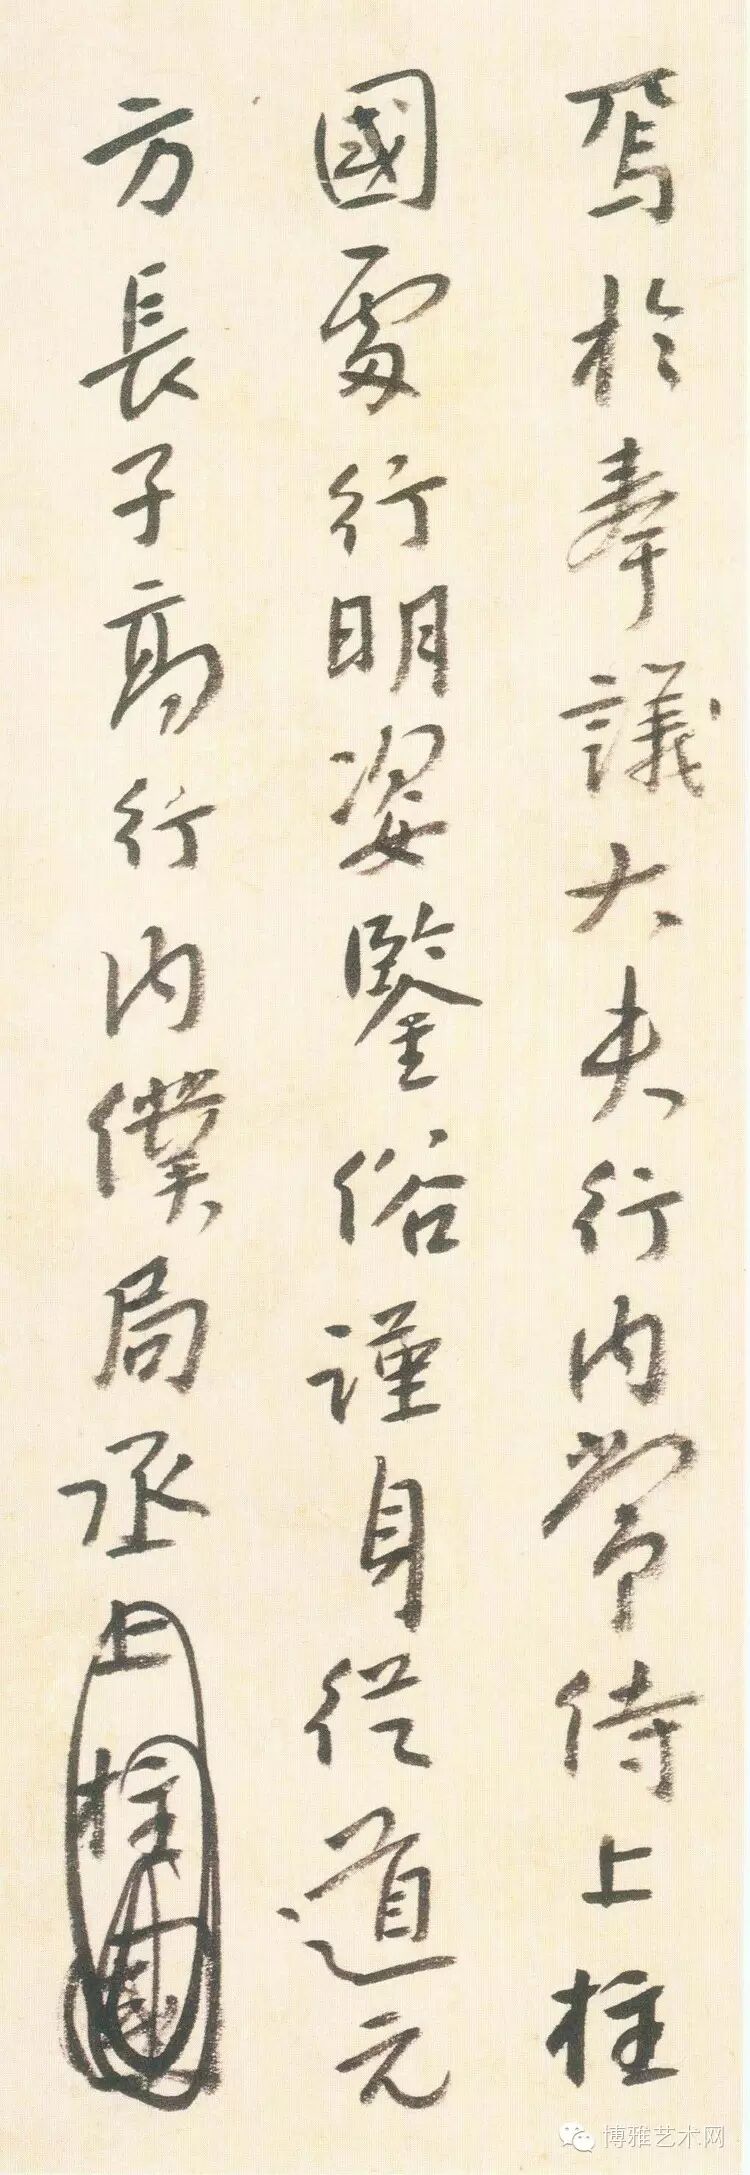 焉於奉議大夫行内常侍上柱
國雷行明姿鑒俗謹身從道元
方長子高行内僕局丞上柱國
博雅艺术网